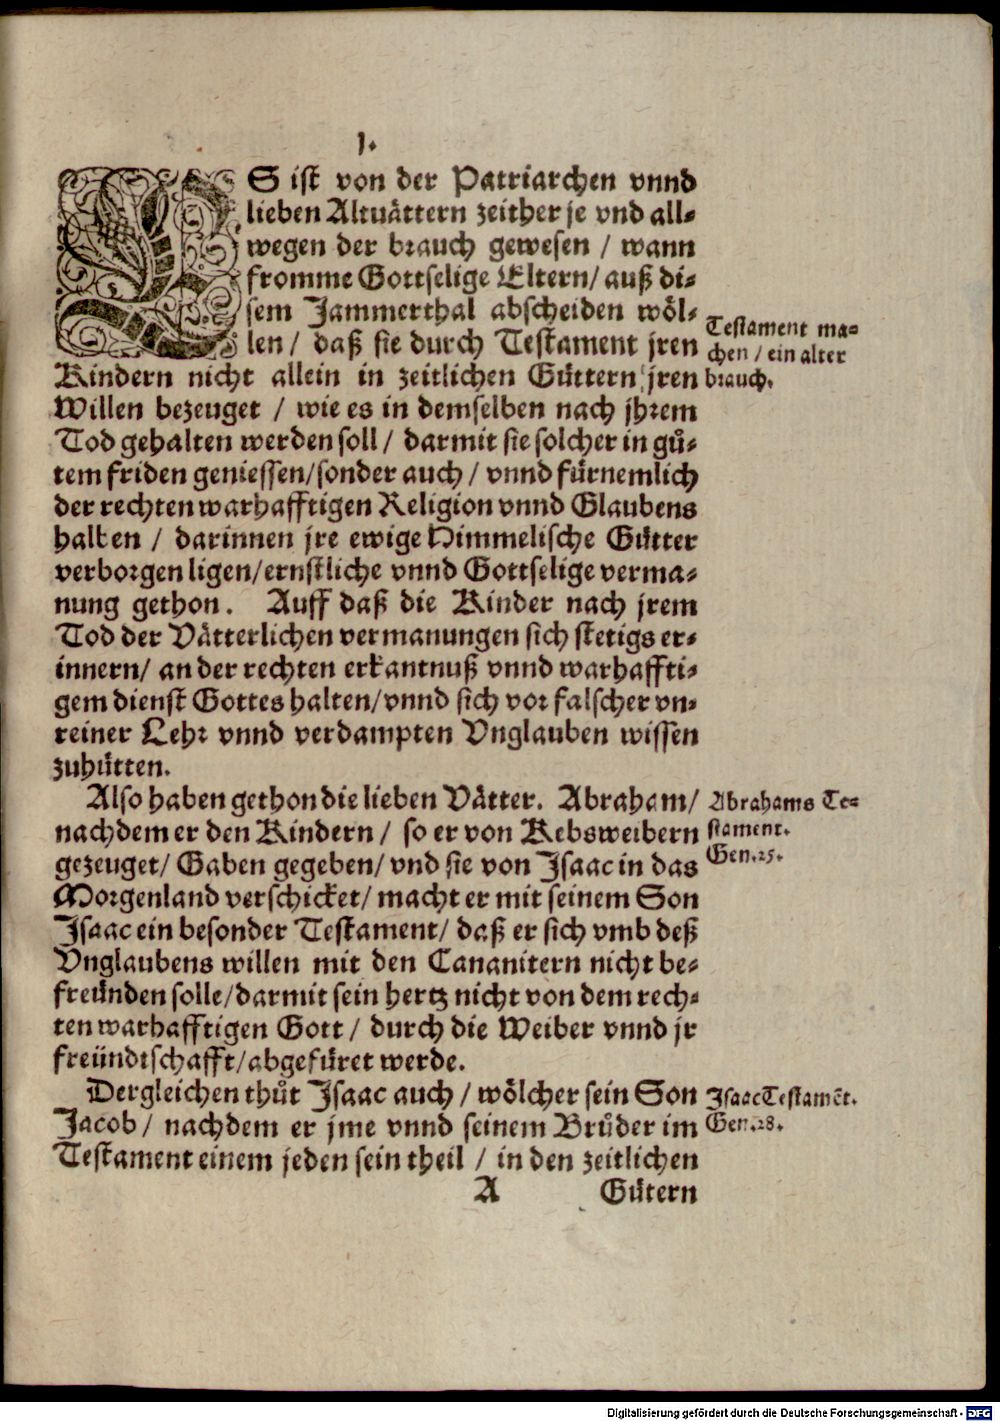 1.
ES ist von der Patriarchen vnnd
lieben Altuåttern zeither je vnd all-
wegen der brauch gewesen / wann
fromme Gottselige Eltern/ auß di-
sem Jammerthal abscheiden wöl-
len / daß sie durch Testament jren
Kindern nicht allein in zeitlichen Güttern jren
Willen bezeuget / wie es in demselben nach jhrem
Tod gehalten werden soll / darmit sie solcher in gů-
tem friden geniessen/sonder auch / vnnd fürnemlich
der rechten warhafftigen Religion vnnd Glaubens
halben / darinnen jre ewige Himmelische Gütter
verborgen ligen/ernstliche vnnd Gottselige verma-
nung gethon. Auff daß die Kinder nach jrem
Tod der Våtterlichen vermanungen sich stetigs er-
innern/ an der rechten erkantnuß vnnd warhaffti-
gem dienst Gottes halten/vnnd sich vor falscher vn-
reiner Lehr vnnd verdampten Vnglauben wissen
zuhütten.
Testament ma-
chen / ein alter
brauch.
Also haben gethon die lieben Våtter. Abraham/
nachdem er den Kindern / so er von Kebsweibern
gezeuget/ Gaben gegeben/ vnd sie von Isaac in das
Morgenland verschicket/ macht er mit seinem Son
Isaac ein besonder Testament/ daß er sich vmb deß
Vnglaubens willen mit den Cananitern nicht be-
freünden solle/darmit sein hertz nicht von dem rech-
ten warhafftigen Gott / durch die Weiber vnnd jr
freündtschafft/abgefüret werde.
Abrahams Te-
stament.
Gen.25.
Dergleichen thůt Isaac auch / wölcher sein Son
Jacob / nachdem er jme vnnd seinem Brůder im
Testament einem jeden sein theil / in den zeitlichen
Isaac Testamēt.
Gen.28.
A Gütern
Digitalisierung gefördert durch die Deutsche Forschungsgemeinschaft - DFG